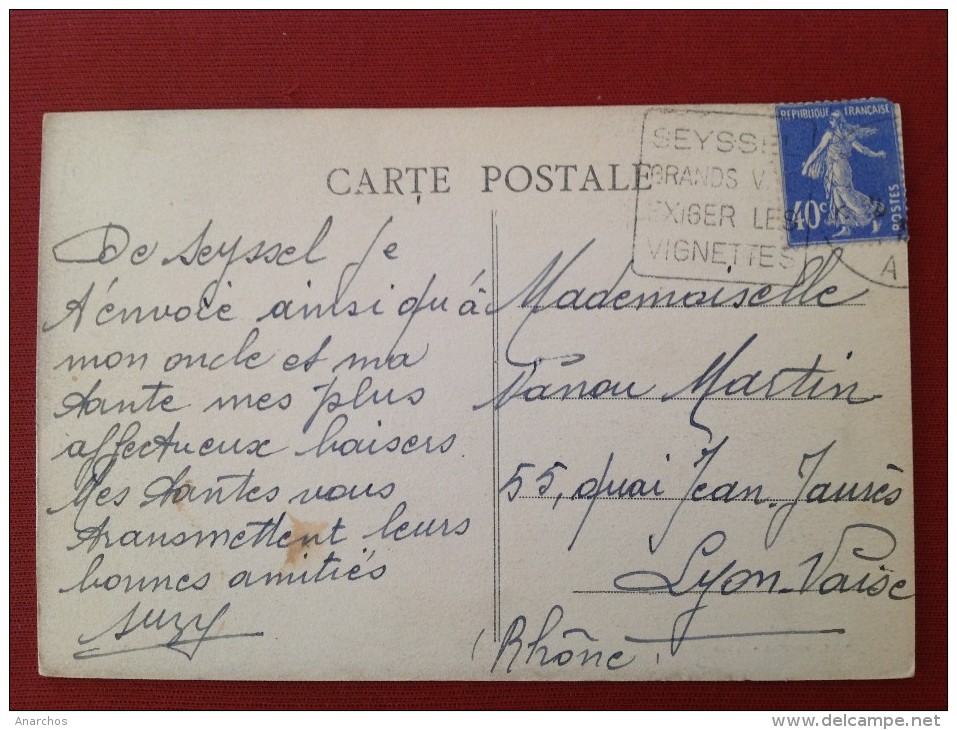 CARTE POSTALE
SEYSSEL
GRANDS V
EXIGER LES
VIGNETTES
REPUBLIQUE FRANÇAISE
40c
POSTES
A
De Seyssel je
t'envoie ainsi qu'à
mon oncle et ma
tante mes plus
affectueux baisers
Mes tantes vous
transmettent leurs
bonnes amitiés
Suzy
Mademoiselle
Nanou Martin
55, quai Jean-Jaurès
Lyon-Vaise
(Rhône)
Anarchos
www.delcampe.net